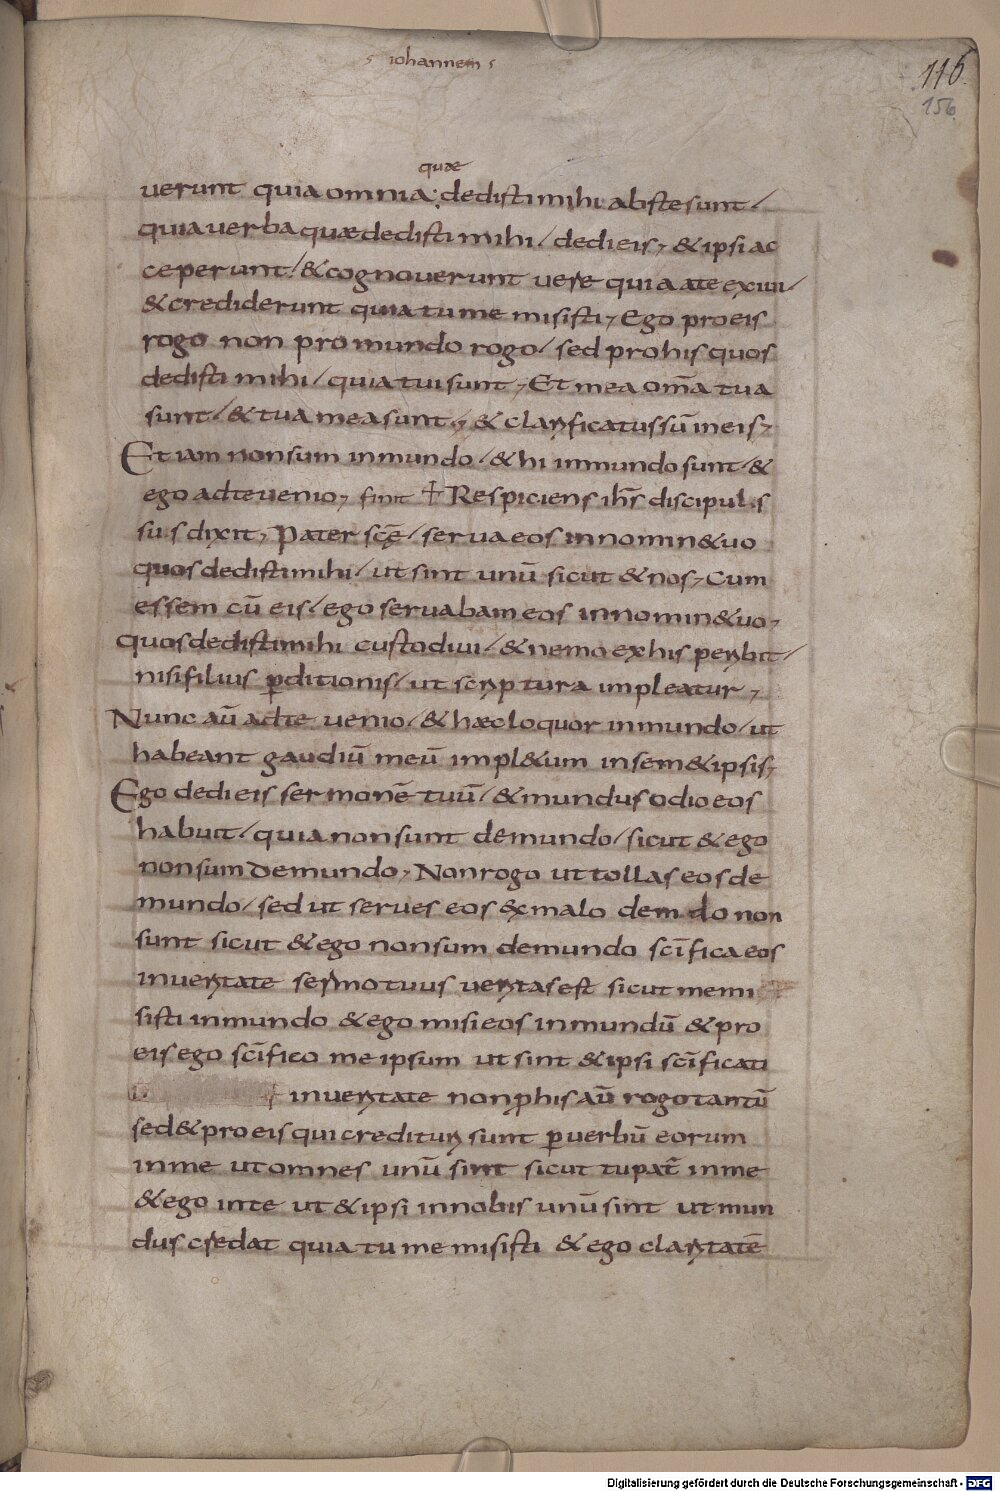 iohannem
116
156
quae
uerunt quia omnia dedisti mihi abste sunt /
quia uerba quae dedisti mihi / dedi eis, & ipsi ac
ceperunt / & cognouerunt uere quia ate exiui /
& crediderunt quia tu me misisti, Ego pro eis
rogo non pro mundo rogo / sed pro his quos
dedisti mihi / quia tui sunt, Et mea om̄a tua
sunt / & tua mea sunt, & clarificatus sū in eis,
Et iam non sum in mundo / & hi in mundo sunt / &
ego ad te uenio, finit ✝ Respiciens ih̄s discipulos
suos dixit, Pater scē / serua eos in nomin& uo
quos dedisti mihi / ut sint unū sicut & nos, Cum
essem cū eis / ego seruabam eos in nomin& uo,
quos dedisti mihi custodiui / & nemo ex his peribit /
nisi filius p̄ditionis / ut scriptura impleatur,
Nunc aū ad te uenio / & haec loquor in mundo / ut
habeant gaudiū meū impl&um in sem&ipsis,
Ego dedi eis sermonē tuū / & mundus odio eos
habuit / quia non sunt de mundo / sicut & ego
non sum de mundo, Non rogo ut tollas eos de
mundo / sed ut serues eos ex malo de mundo non
sunt sicut & ego non sum de mundo scīfica eos
in ueritate sermo tuus ueritas est sicut me mi
sisti in mundo & ego misi eos in mundū & pro
eis ego scīfico me ipsum ut sint & ipsi scīficati
in ueritate non p̄ his aū rogo tantū
sed & pro eis qui credituri sunt p̄ uerbū eorum
in me ut omnes unū sint sicut tu pat̄ in me
& ego in te ut & ipsi in nobis unū sint ut mun
dus credat quia tu me misisti & ego claritatē
Digitalisierung gefördert durch die Deutsche Forschungsgemeinschaft - DFG